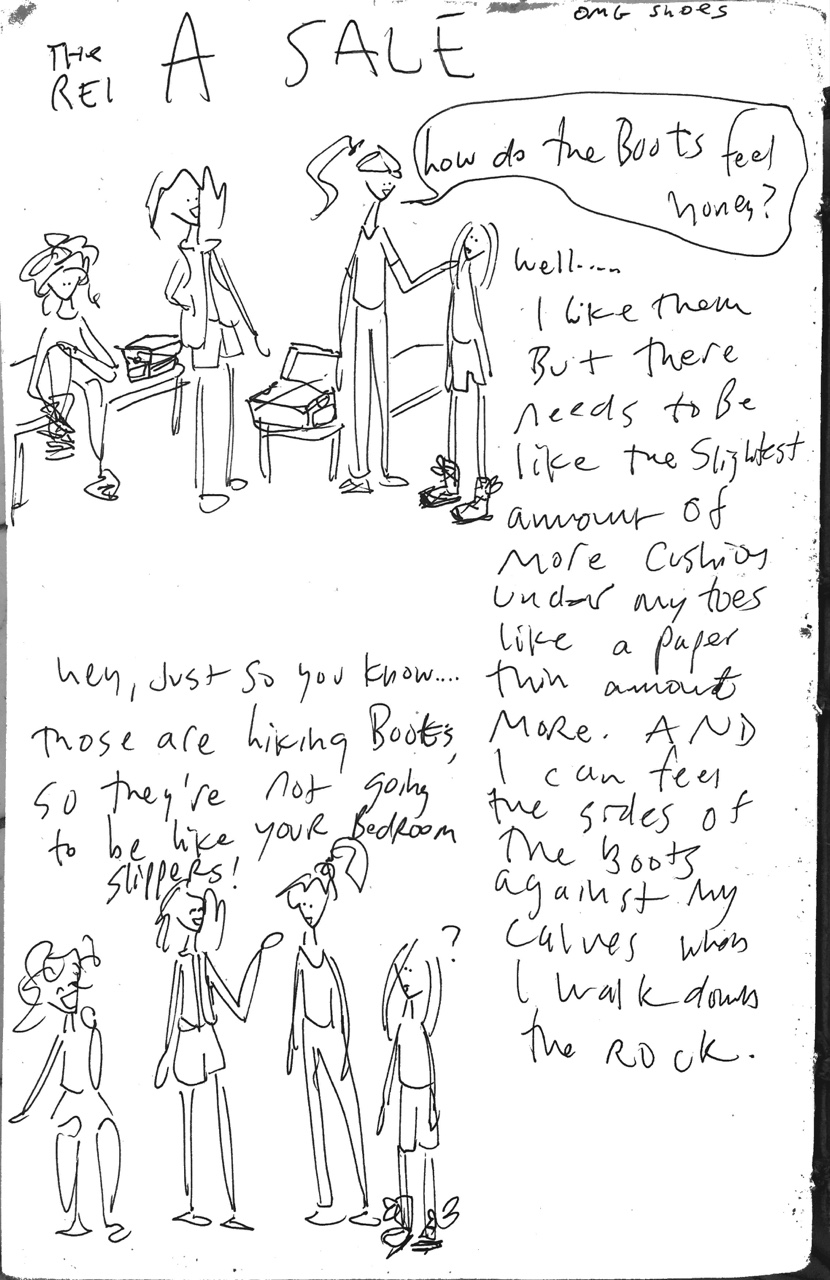 OMG SHOES
THE REI A SALE
how do the Boots feel
honey?
Well.....
I like them
But there
needs to Be
like the Slightest
amount of
more cushion
under my toes
like a paper
thin amount
More. AND
I can feel
the sides of
the Boots
against my
calves when
I walk down
the ROCK.
hey, Just so you know....
those are hiking Boots,
so they're not going
to be like YOUR BedROOM
slippers!
?